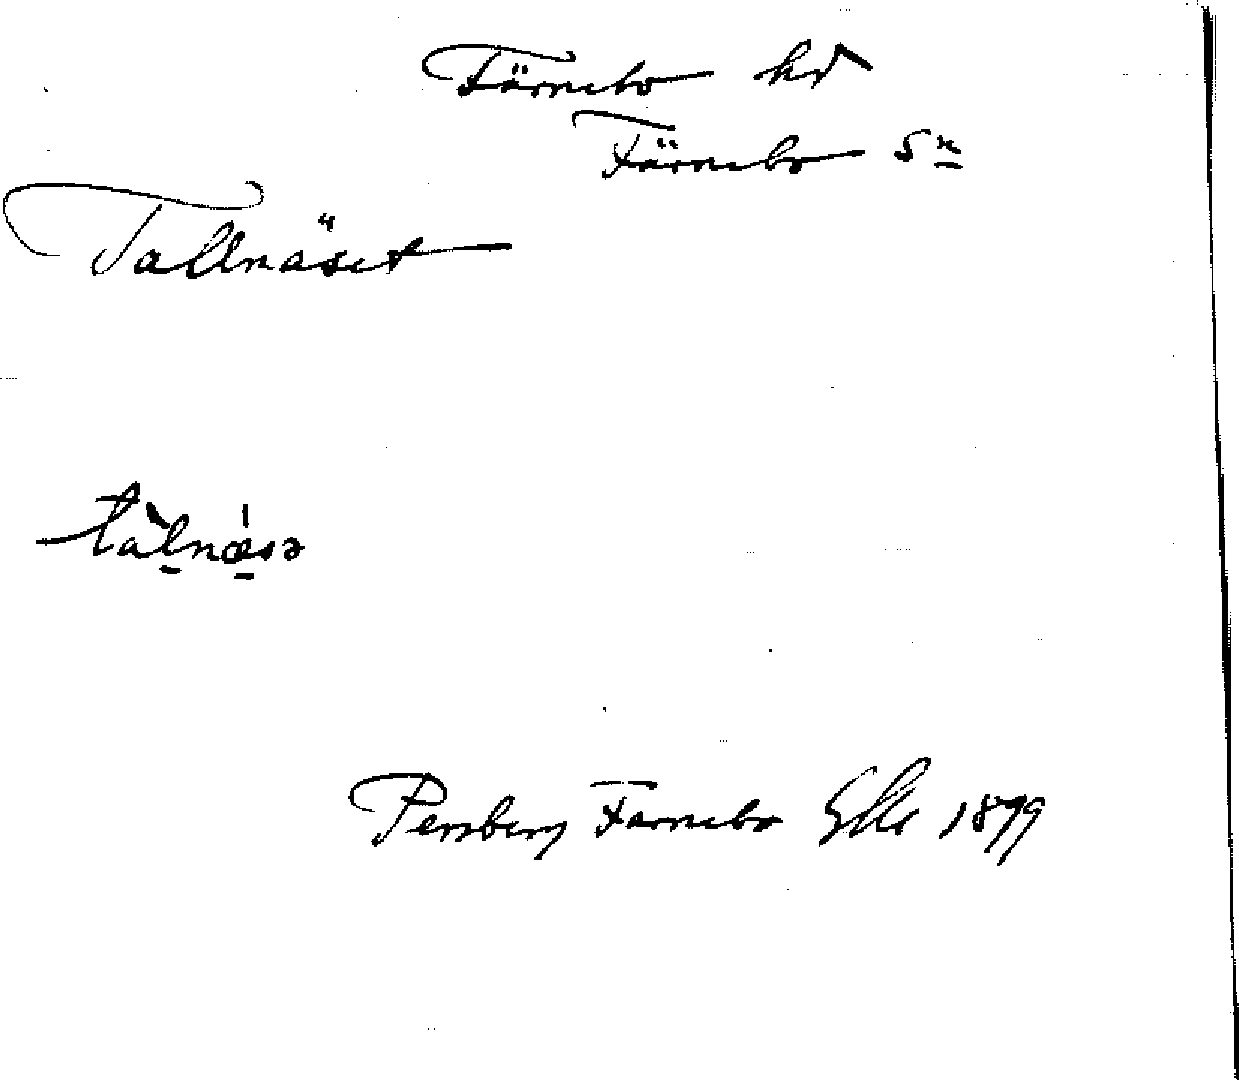 Färnebo hd
Färnebo sn
Tallnäset
tàlnæsə
Persberg Färnebo Gbr 1899